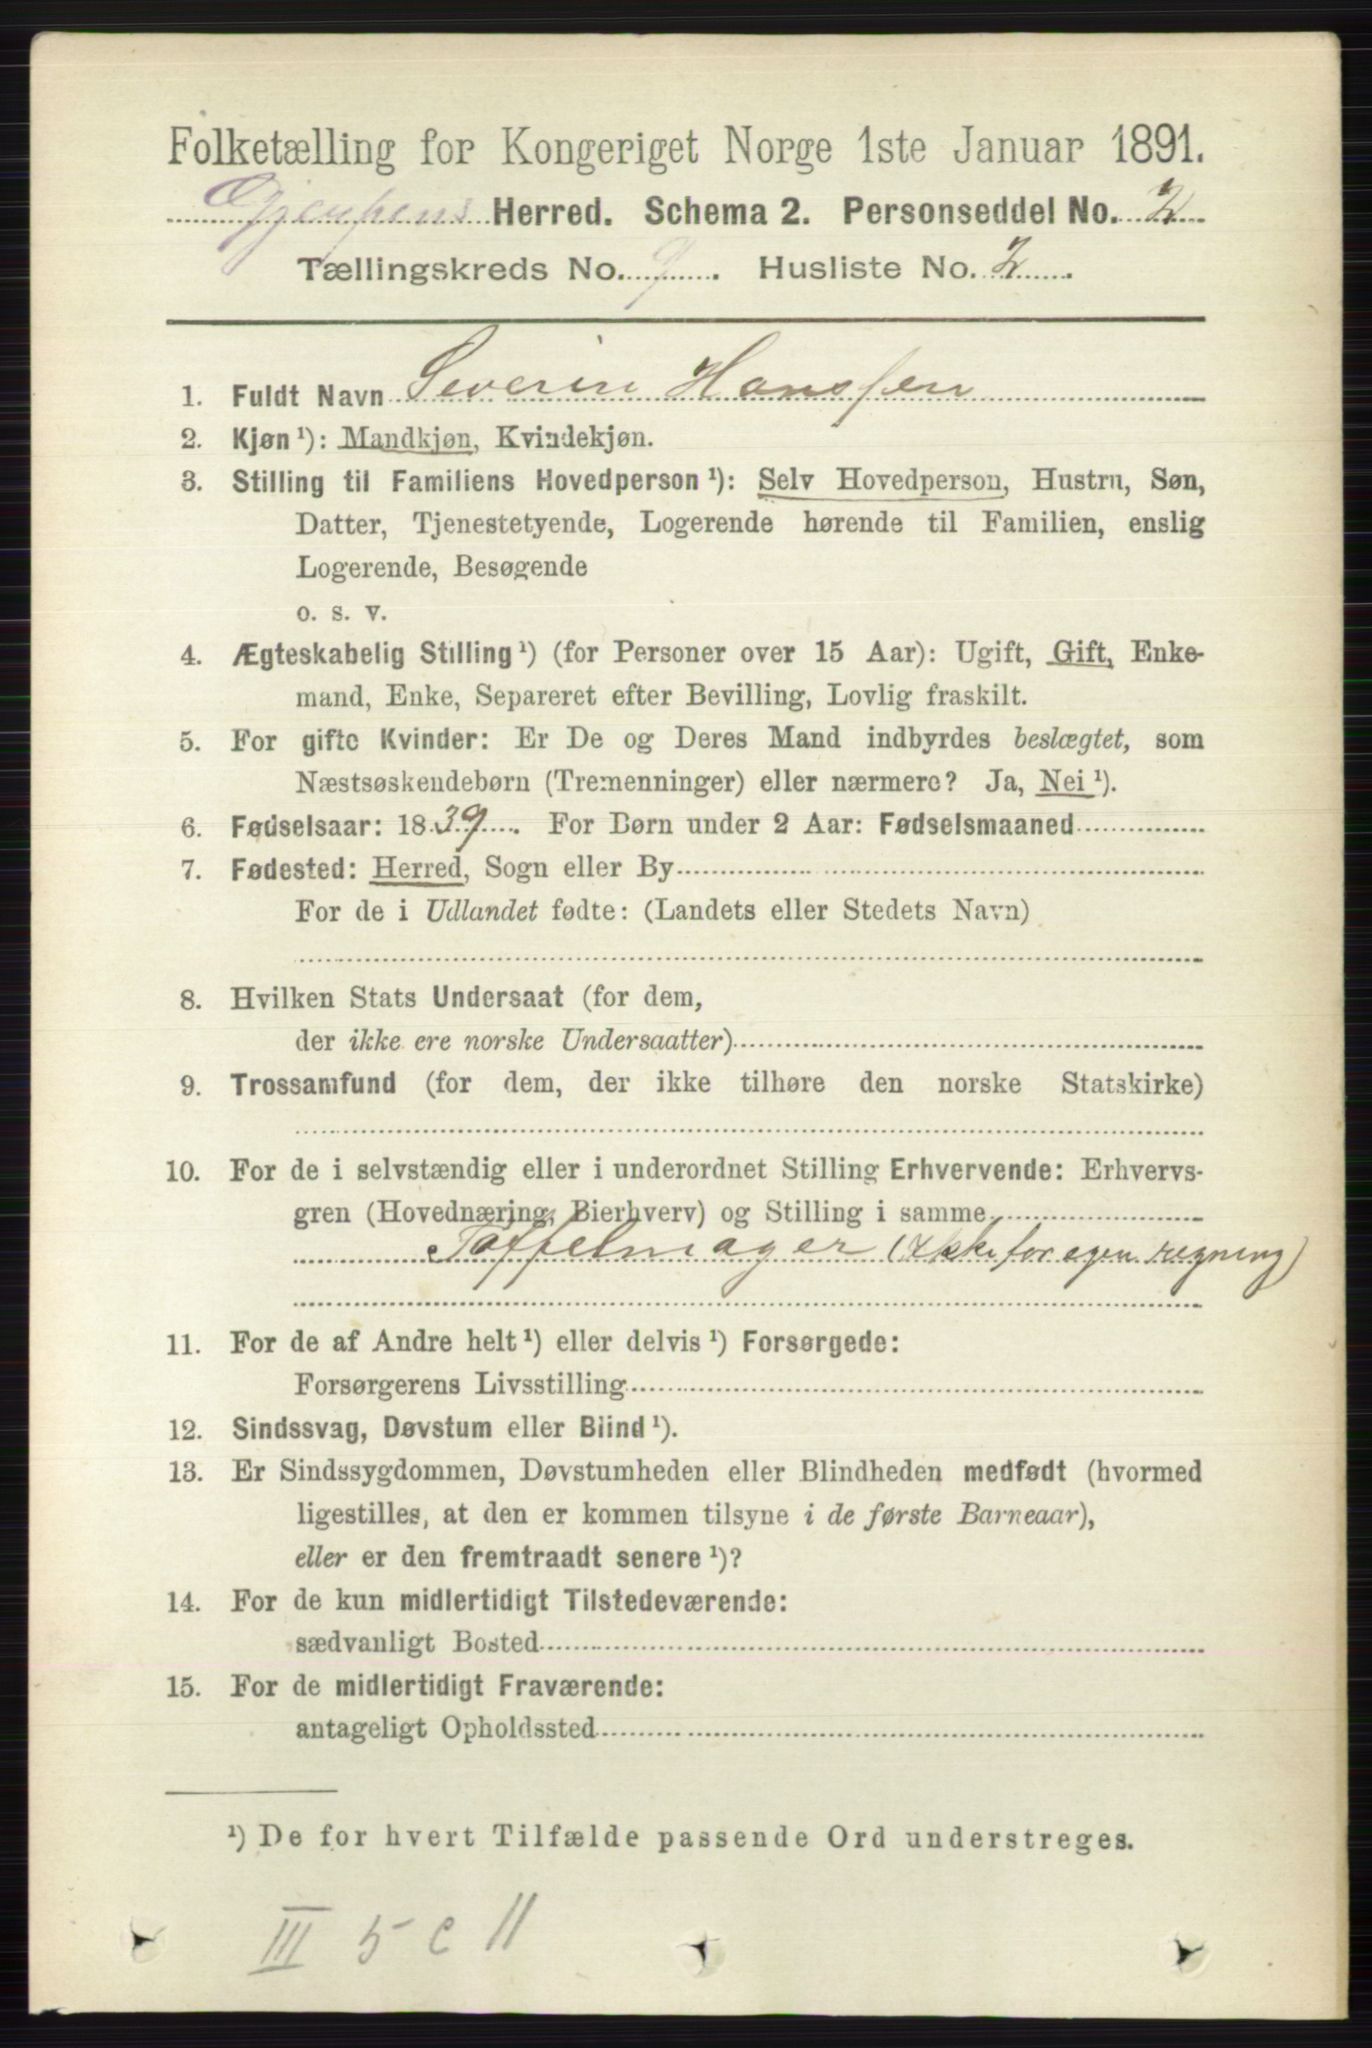 Folketælling for Kongeriget Norge 1ste Januar 1891.
Gjerpens Herred. Schema 2. Personseddel No. 2
Tællingskreds No. 9. Husliste No. 2.
1. Fuldt Navn Severin Hanssen
2. Kjøn ¹): Mandkjøn, Kvindekjøn.
3. Stilling til Familiens Hovedperson ¹): Selv Hovedperson, Hustru, Søn,
Datter, Tjenestetyende, Logerende hørende til Familien, enslig
Logerende, Besøgende
o. s. v.
4. Ægteskabelig Stilling ¹) (for Personer over 15 Aar): Ugift, Gift, Enke-
mand, Enke, Separeret efter Bevilling, Lovlig fraskilt.
5. For gifte Kvinder: Er De og Deres Mand indbyrdes beslægtet, som
Næstsøskendebørn (Tremenninger) eller nærmere? Ja, Nei ¹).
6. Fødselsaar: 1839. For Børn under 2 Aar: Fødselsmaaned
7. Fødested: Herred, Sogn eller By
For de i Udlandet fødte: (Landets eller Stedets Navn)
8. Hvilken Stats Undersaat (for dem,
der ikke ere norske Undersaatter)
9. Trossamfund (for dem, der ikke tilhøre den norske Statskirke)
10. For de i selvstændig eller i underordnet Stilling Erhvervende: Erhvervs-
gren (Hovednæring, Bierhverv) og Stilling i samme
Tøffelmager (ikke for egen regning)
11. For de af Andre helt ¹) eller delvis ¹) Forsørgede:
Forsørgerens Livsstilling
12. Sindssvag, Døvstum eller Blind ¹).
13. Er Sindssygdommen, Døvstumheden eller Blindheden medfødt (hvormed
ligestilles, at den er kommen tilsyne i de første Barneaar),
eller er den fremtraadt senere ¹)?
14. For de kun midlertidigt Tilstedeværende:
sædvanligt Bosted
15. For de midlertidigt Fraværende:
antageligt Opholdssted
¹) De for hvert Tilfælde passende Ord understreges.
III 5 c 11